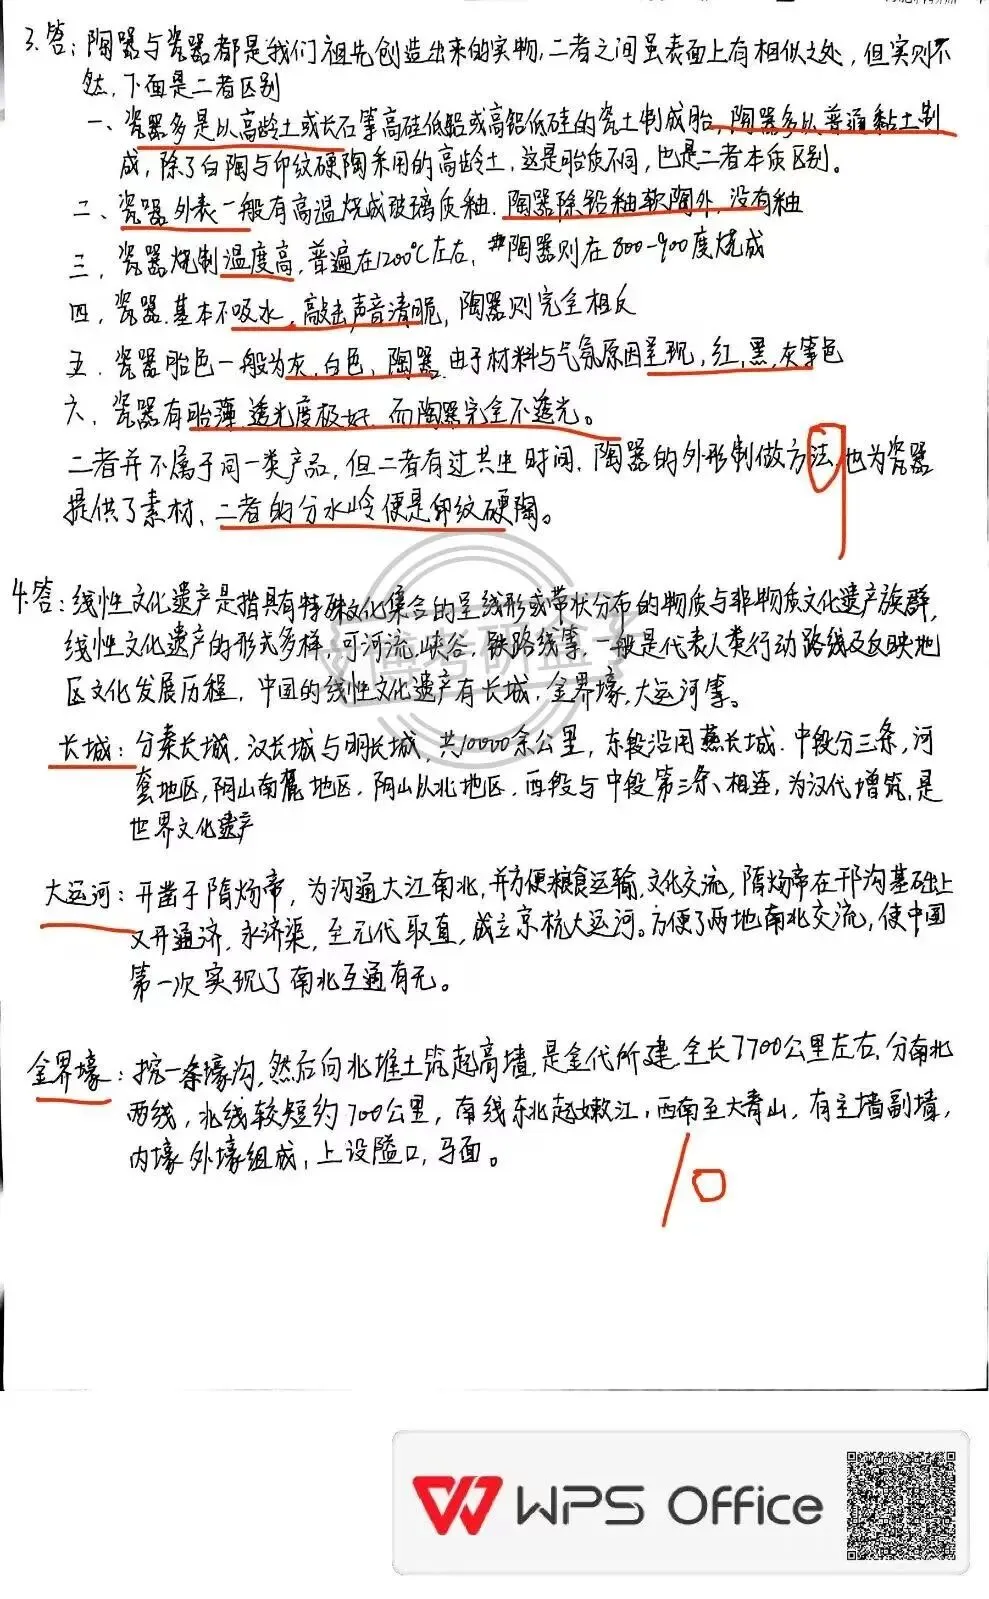 3.答：陶器与瓷器都是我们祖先创造出来的实物，二者之间虽表面上有相似之处，但实则不
然，下面是二者区别
一、瓷器多是以高龄土或长石等高硅低铝或高铝低硅的瓷土制成胎，陶器多以普通黏土制
成，除了白陶与印纹硬陶采用的高龄土，这是胎质不同，也是二者本质区别。
二、瓷器外表一般有高温烧成玻璃质釉，陶器除铅釉软陶外，没有釉
三、瓷器烧制温度高，普遍在1200℃左右，陶器则在800-900度烧成
四，瓷器基本不吸水，敲击声音清脆，陶器则完全相反
五、瓷器胎色一般为灰，白色，陶器由于材料与气氛原因呈现，红，黑，灰等色
六、瓷器有胎薄透光度极好，而陶器完全不透光。
二者并不属于同一类产品，但二者有过共生时间，陶器的外形制做方法，也为瓷器
提供了素材，二者的分水岭便是印纹硬陶。
9
4.答：线性文化遗产是指具有特殊文化集合的呈线形或带状分布的物质与非物质文化遗产族群，
线性文化遗产的形式多样，可河流，峡谷，铁路线等，一般是代表人类行动路线及反映地
区文化发展历程，中国的线性文化遗产有长城，金界壕，大运河等。
博考研盒子
长城：分秦长城，汉长城与明长城，共10000余公里，东段沿用燕长城，中段分三条，河
套地区，阴山南麓地区，阴山以北地区，西段与中段第三条相连，为汉代增筑，是
世界文化遗产
大运河：开凿于隋炀帝，为沟通大江南北，并方便粮食运输，文化交流，隋炀帝在邗沟基础上
又开通济，永济渠，至元代取直，成立京杭大运河。方便了两地南北交流，使中国
第一次实现了南北互通有无。
金界壕：挖一条壕沟，然后向北堆土筑起高墙，是金代所建，全长7700公里左右，分南北
两线，北线较短约700公里，南线东北起嫩江，西南至大青山，有主墙副墙，
内壕外壕组成，上设隘口，马面。
10
WPS Office